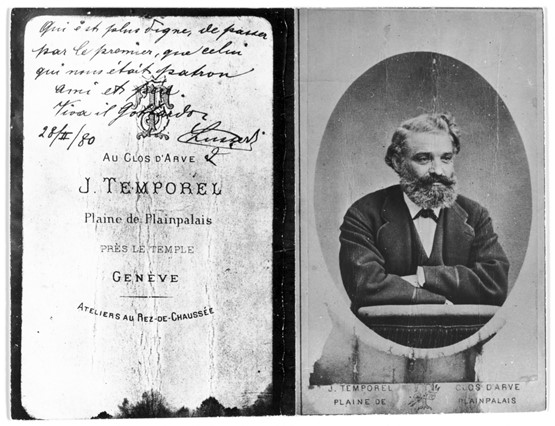 Qui est plus digne, de passer
par le premier, que celui
qui nous était patron
ami et père.
Viva il Gottardo
28/II/80
AU CLOS D'ARVE
J. TEMPOREL
Plaine de Plainpalais
PRÈS LE TEMPLE
GENÈVE
ATELIERS AU REZ-DE-CHAUSSÉE
J. TEMPOREL CLOS D'ARVE
PLAINE DE PLAINPALAIS